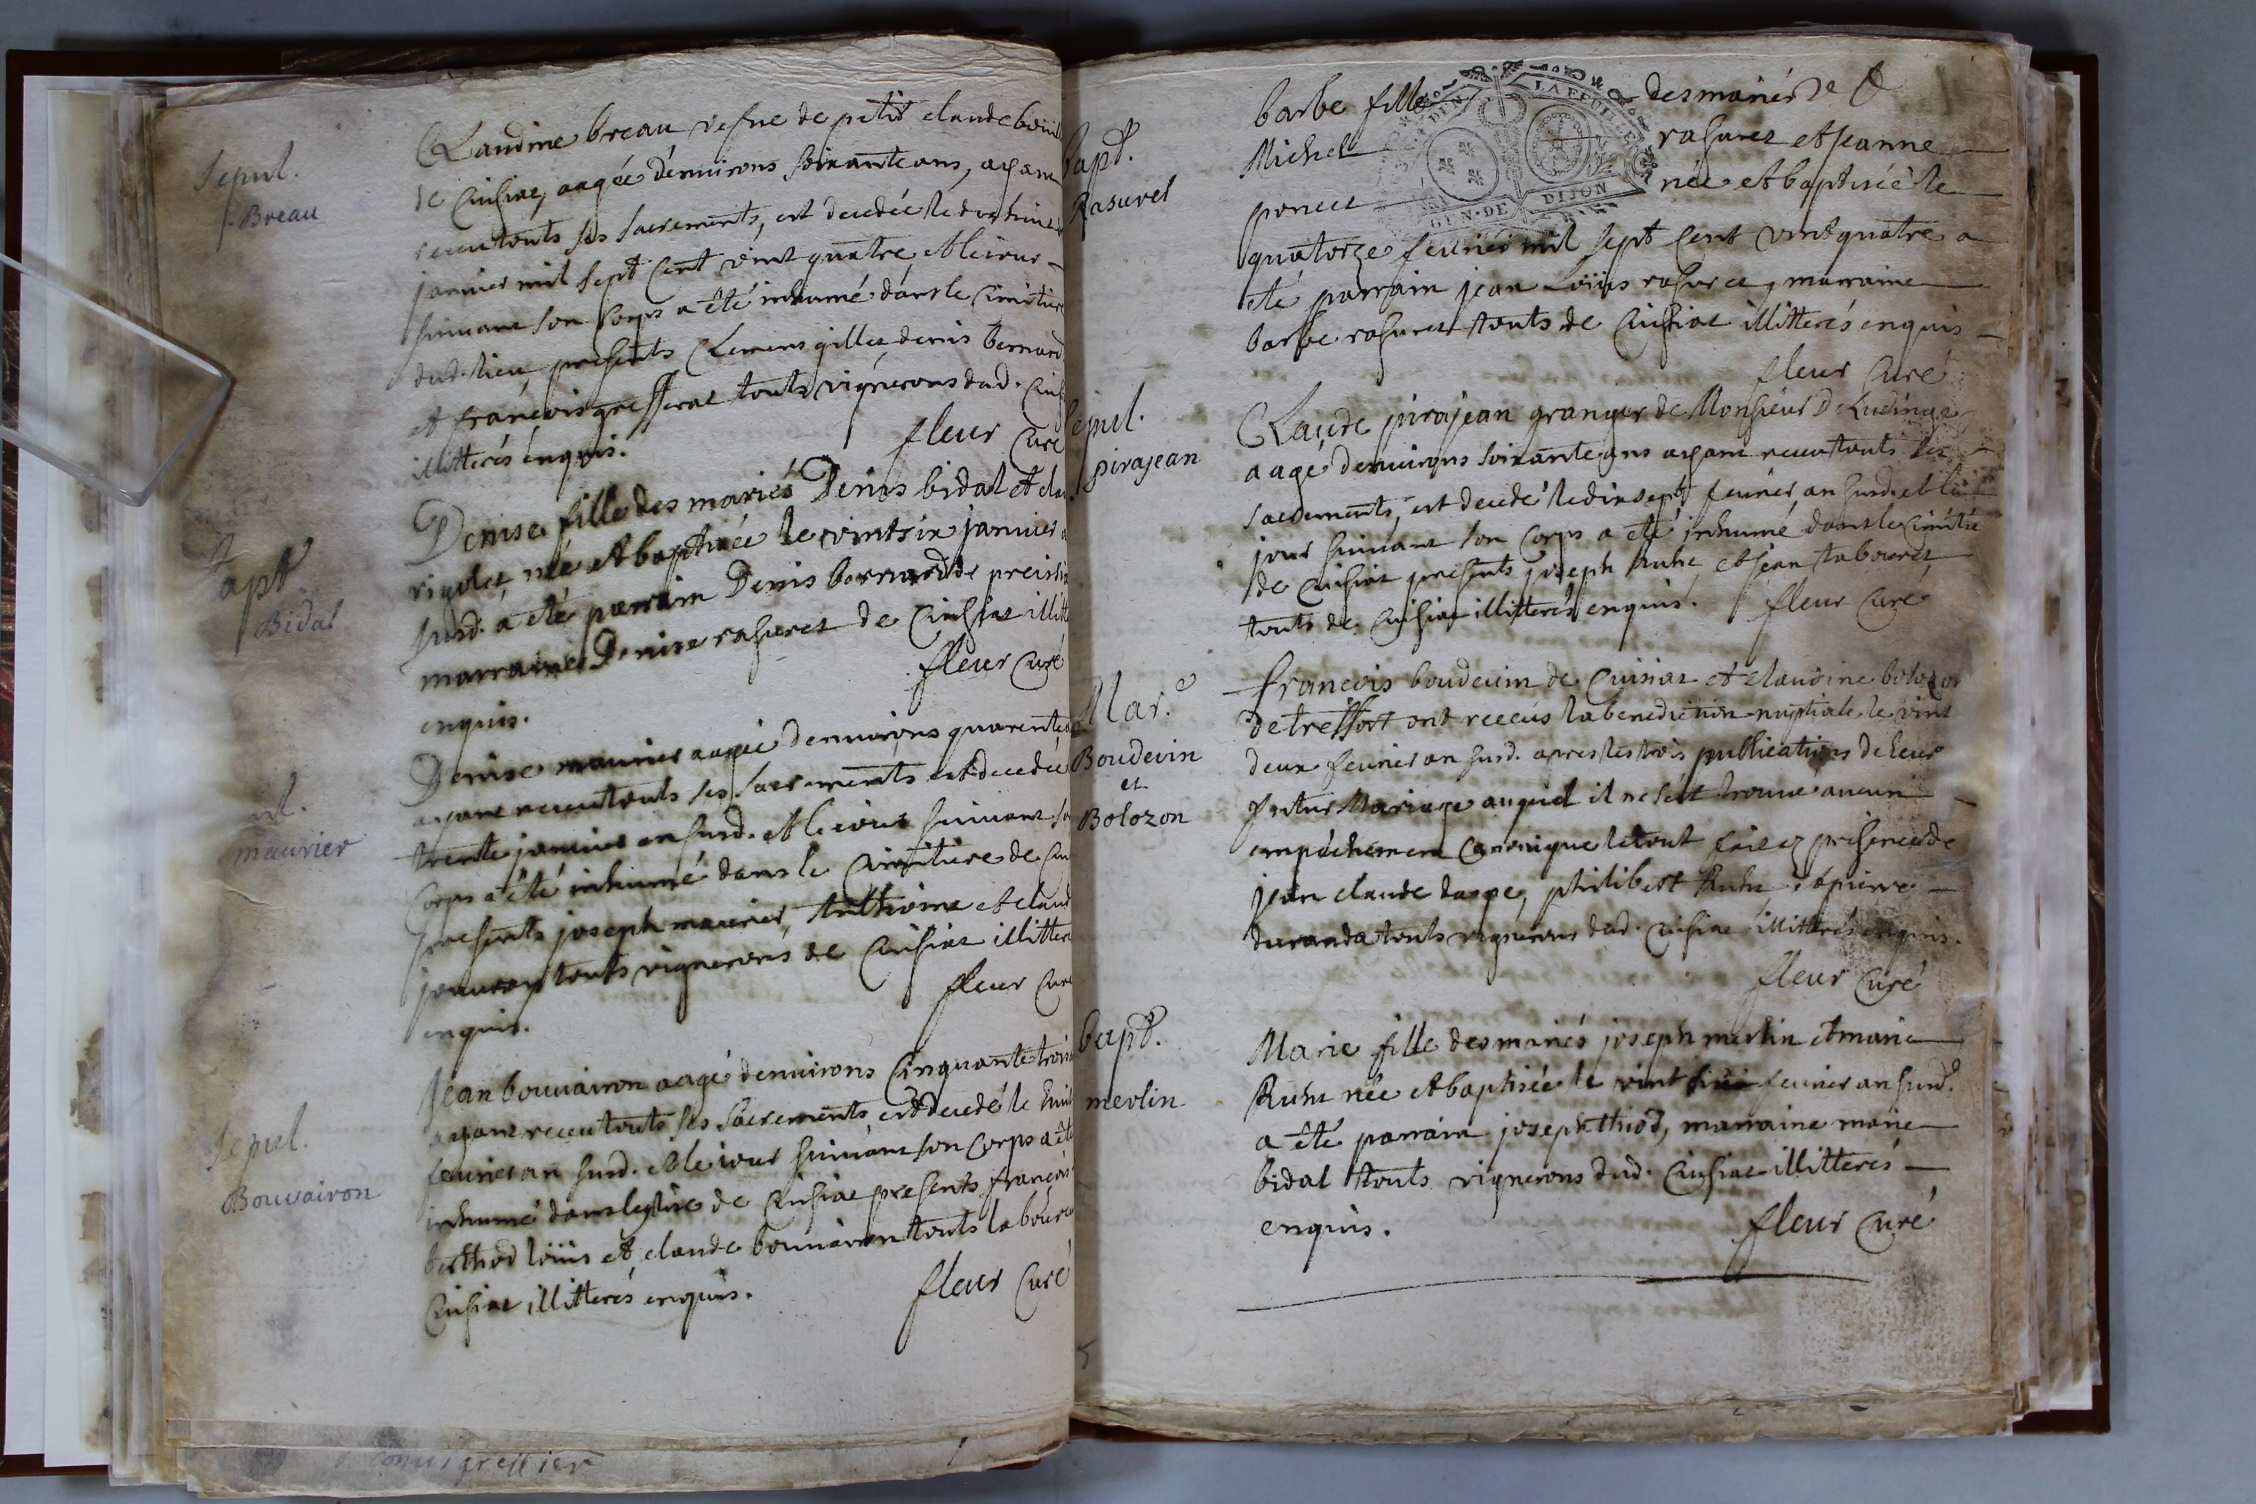 Sepul.
Breau
Claudine breau vefue de petit claude
de Cuisiat, aagée d'enuirons soixante ans, ayant
receu touts ses sacrements, est decedée le
januier mil sept cent vint quatre, et le iour
suiuant son corps a êté inhumé dans le Cimitiere
dud. lieu presents Clemens gillet, denis bernard
et françois touts vignerons dud.
illitterés enquis.
fleur Curé
apt
Bidal
Denise fille des mariés Denis bidal et
rigolet née et baptisée le vintsix januier
susd. a êté parrain Denis bernard de
marraine Denise rasurel de Cuisiat
enquis.
fleur Curé
maurier
Denise maurier aagée d'enuirons quarente
ayant receu touts ses sacrements est decedée
trente januier an susd. et le iour suiuant
corps a êté inhumé dans le Cimitiere de
presents joseph maurier, Anthoine et
touts vignerons de Cuisiat
enquis.
fleur Curé
Sepul.
Bouvairon
Jean bouuairon aagé d'enuirons Cinquante trois
ayant receu touts ses sacrements est decedé le
feurier an susd. et le iour suiuant son Corps a êté
inhumé dans leglise de Cuisiat presents françois
berthod loüis et claude bouuairon touts
Cuisiat illitterés enquis.
fleur Curé
greffier
bapt.
Rasurel
barbe fille des mariés
Michel rasurel et Jeanne
poncet née et baptisée le
LA FEUILLE
GEN·DE DIJON
quatorze feurier mil sept Cent vint quatre a
eté parrain jean Loüis rasurel, marraine
barbe rasurel touts de Cuisiat illitterés enquis
fleur Curé
Sepul.
pirajean
Claude pirajean granger de Monsieur
aagé d'enuirons soixante ans ayant receu touts les
sacrements, est decedé le dixsept feurier, an susd. et le
jour suiuant son Corps a eté inhumé dans le Cimitie
de Cuisiat presents joseph Ruhet, et jean tabouret
touts de Cuisiat illitterés enquis.
fleur Curé
Mar.e
Boudevin
et
Bolozon
françois bouderin de Cuisiat et claudine bolozon
de treffort ont receus la benediction nuptiale le vint
deux feurier an susd. apres les trois publications de leur
futur Mariage auquel il ne s'est trouué aucun
empéchement Canonique le tout fait ez presences de
jean claude philibert Ruhet, et pierre
durandet touts vignerons dud. Cuisiat illitterés enquis.
fleur Curé
bapt.
merlin
Marie fille des mariés joseph merlin et marie
Ruhet née et baptisée le vint feurier an susd.
a êté parrain joseph thiod, marraine marie
bidal touts vignerons dud. Cuisiat illitterés
enquis.
fleur Curé